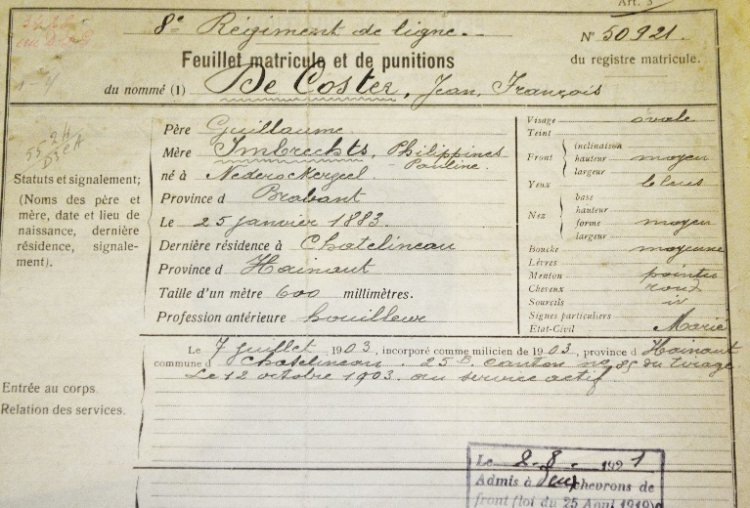 Art. 3
8e Régiment de ligne.
Feuillet matricule et de punitions
N° 50921.
du registre matricule.
du nommé (1) De Coster, Jean, François
Statuts et signalement;
(Noms des père et
mère, date et lieu de
naissance, dernière
résidence, signale-
ment).
Père Guillaume
Mère Imbrechts, Philippines
Pauline
né à Nederockerzeel
Province d Brabant
Le 25 janvier 1883
Dernière résidence à Chatelineau
Province d Hainaut
Taille d'un mètre 600 millimètres.
Profession antérieure houilleur
Visage ovale
Teint
Front inclination
hauteur moyen
largeur
Yeux bleus
Nez base
hauteur
forme moyen
largeur
Bouche moyenne
Lèvres
Menton pointu
Cheveux rond
Sourcils
Signes particuliers
État-Civil Marié
Entrée au corps.
Relation des services.
Le 7 juillet 1903, incorporé comme milicien de 1903, province d Hainaut
commune d Chatelineau. 25e canton no 85 du tirage
Le 12 octobre 1903 au service actif
Le 2-8- 1921
Admis à deux chevrons de
front (loi du 25 Août 1919)